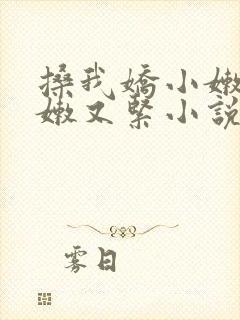 搡我嬌小嫩
嫩又緊小說
雾日